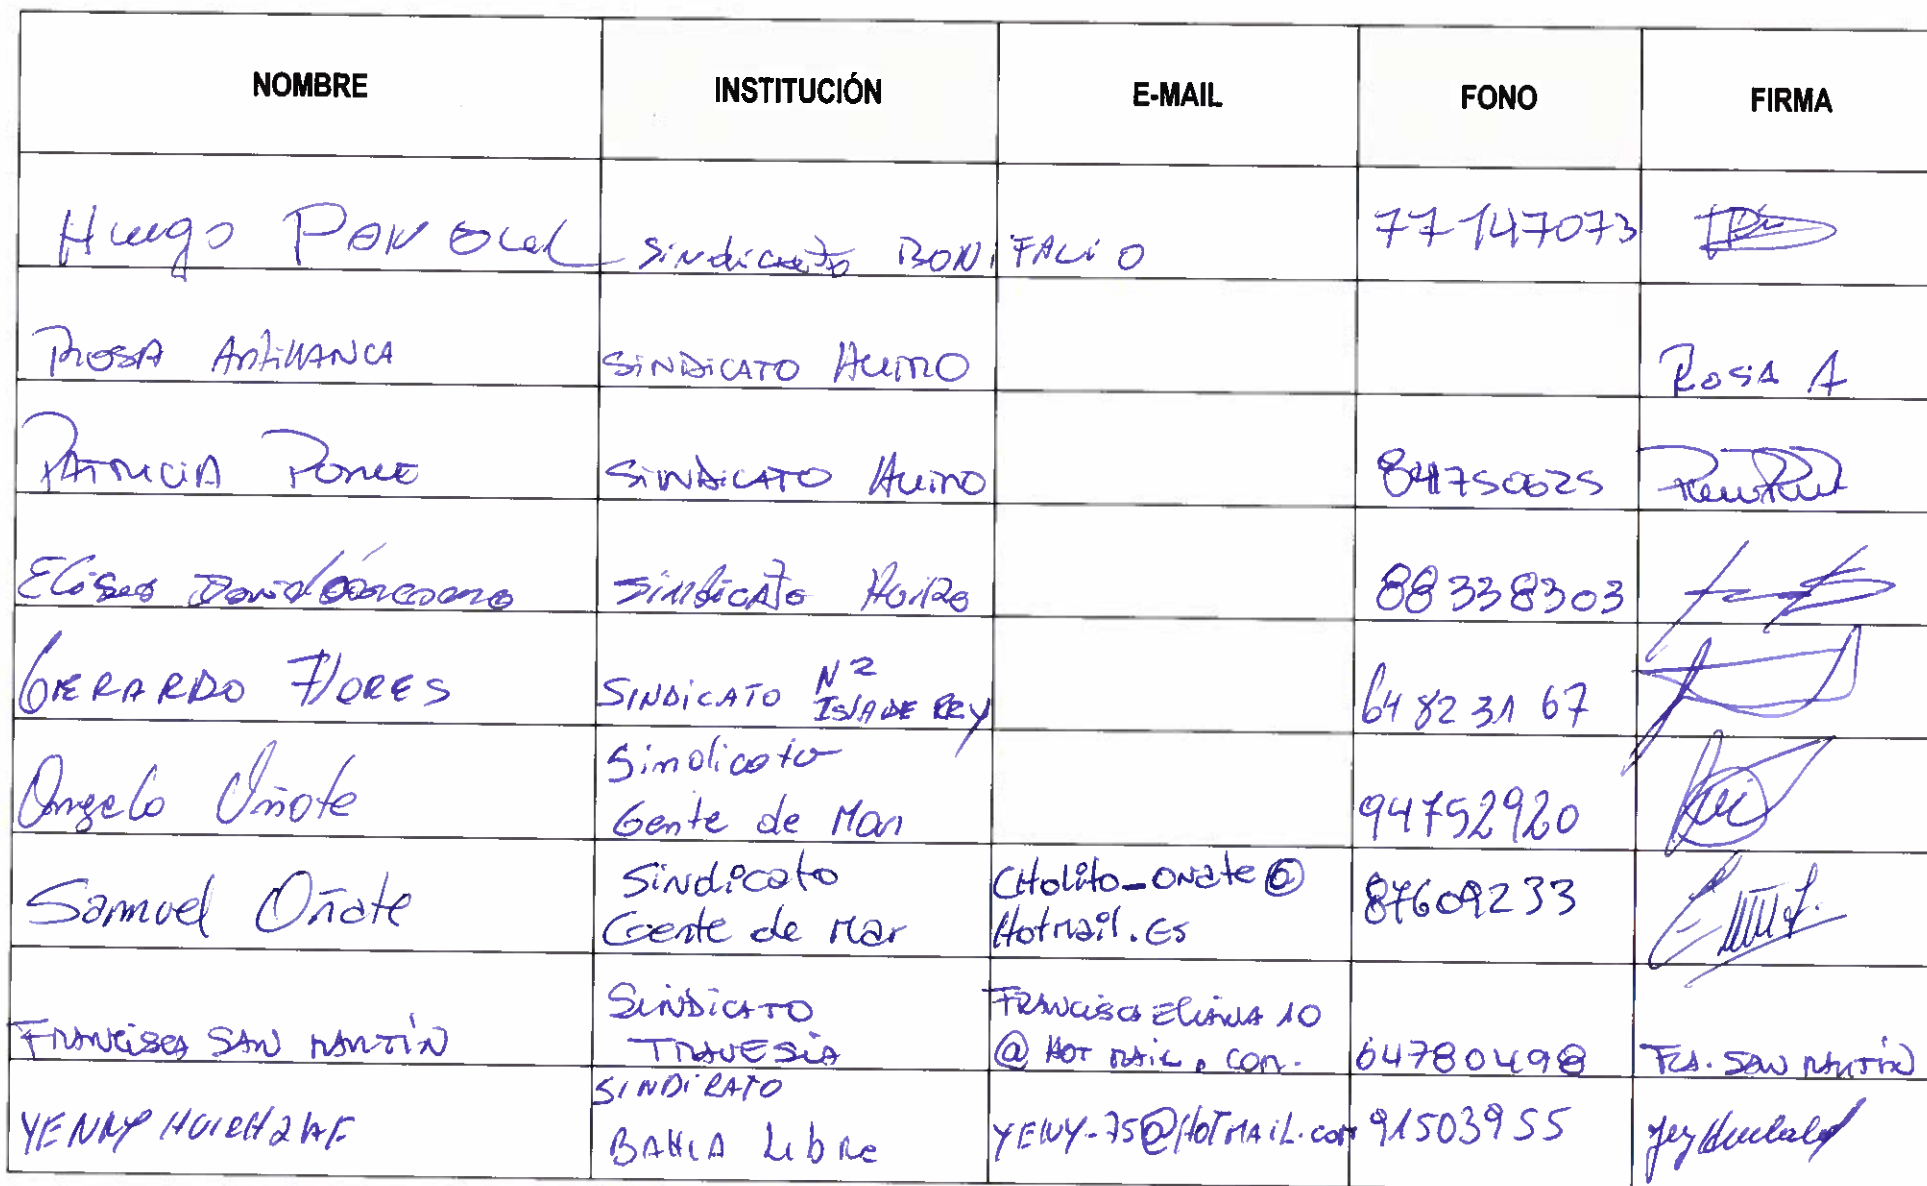 NOMBRE INSTITUCIÓN E-MAIL FONO FIRMA
Hugo sindicato BONIFACIO 77147073
ROSA ANTILLANCA SINDICATO HUIRO ROSA A
PATRICIA PONCE SINDICATO HUIRO 84750625
SINDICATO HUIRO 88338303
GERARDO FLORES SINDICATO N2 ISLA DE REY 64823167
Angelo Oñate Sindicato Gente de Mar 94752920
Samuel Oñate Sindicato Gente de Mar CHolito_onate@ Hotmail.Es 87609233
FRANCISCA SAN MARTÍN SINDICATO TRAVESIA FRANCISCAELIANA10 @HOTMAIL.COM. 64780498 FCA. SAN MARTÍN
YENNY SINDICATO BAHIA Libre YENY-75@HOTMAIL.com 91503955